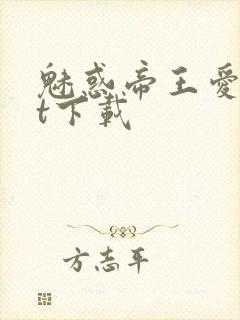 魅惑帝王爱
t下载
方志平